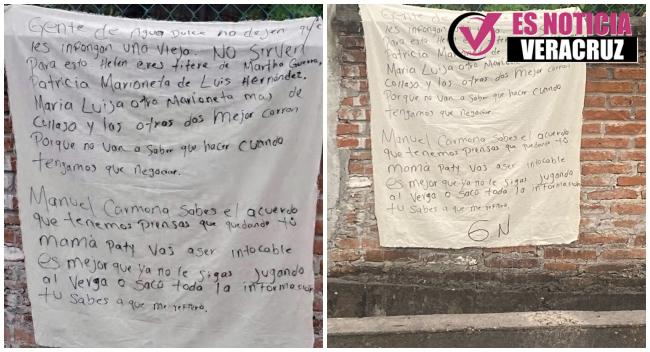 Gente de Agua Dulce no dejen que
les impongan una Vieja. NO SIRVEN
Para esto Helen eres titere de Martha Guerra,
Patricia Marioneta de Luis Hernández.
Maria Luisa otra Marioneta mas de
Collaso y las otras dos mejor corran
Porque no van a saber que hacer Cuando
tengamos que negociar.
Manuel Carmona Sabes el acuerdo
que tenemos piensas que quedando tú
mamá Paty Vas aser intocable
es mejor que ya no le sigas jugando
al Verga o Saco toda la informacion
tu Sabes a que me refiero.
Gente de
les impongan
Para esto
Patricia Mar
Maria Luisa otra Marioneta
Collaso y las otras dos Mejor Corran
Porque no van a saber que hacer Cuando
tengamos que negociar.
Manuel Carmona Sabes el acuerdo
que tenemos piensas que quedando tú
mamá Paty Vas aser intocable
es mejor que ya no le sigas jugando
al Verga o Saco toda la informacion
tu Sabes a que me refiero.
GN
ES NOTICIA
VERACRUZ